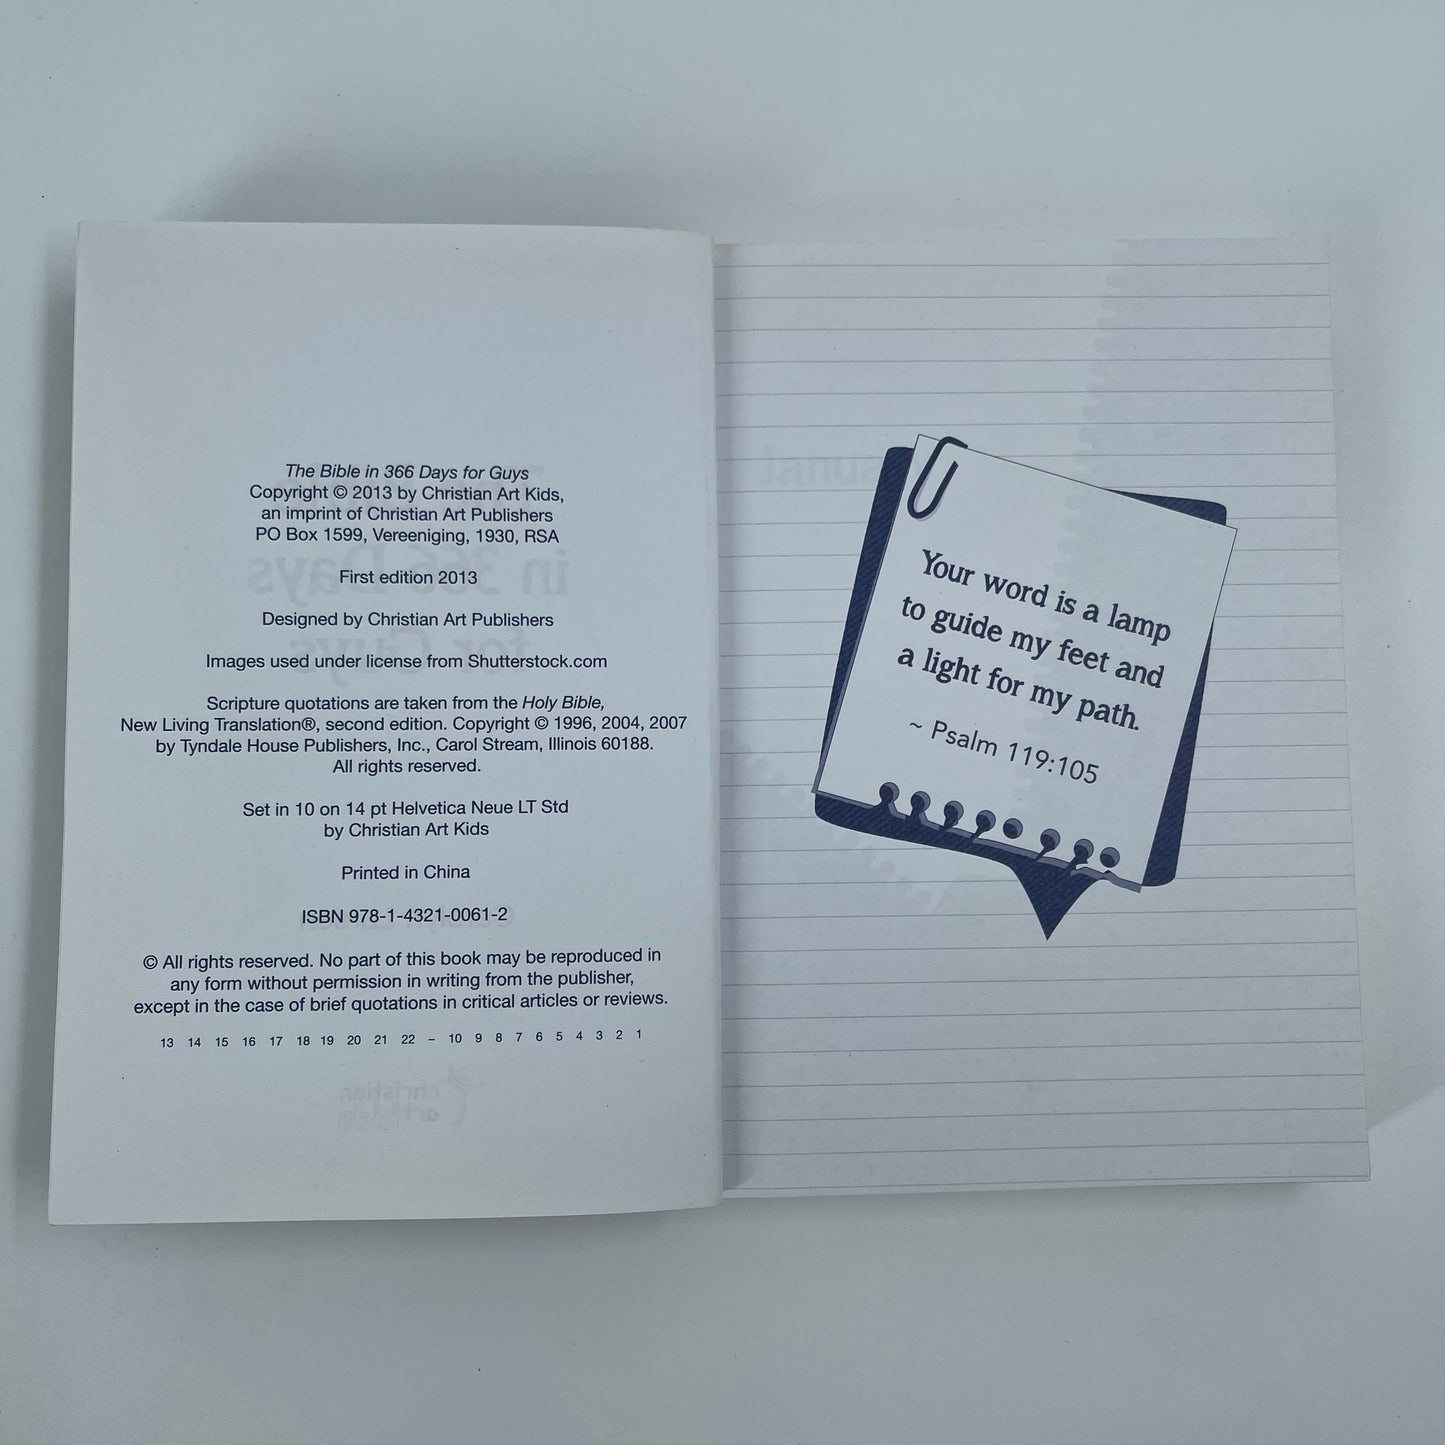 The Bible in 366 Days for Guys
Copyright © 2013 by Christian Art Kids,
an imprint of Christian Art Publishers
PO Box 1599, Vereeniging, 1930, RSA
First edition 2013
Designed by Christian Art Publishers
Images used under license from Shutterstock.com
Scripture quotations are taken from the Holy Bible,
New Living Translation®, second edition. Copyright © 1996, 2004, 2007
by Tyndale House Publishers, Inc., Carol Stream, Illinois 60188.
All rights reserved.
Set in 10 on 14 pt Helvetica Neue LT Std
by Christian Art Kids
Printed in China
ISBN 978-1-4321-0061-2
© All rights reserved. No part of this book may be reproduced in
any form without permission in writing from the publisher,
except in the case of brief quotations in critical articles or reviews.
13 14 15 16 17 18 19 20 21 22 – 10 9 8 7 6 5 4 3 2 1
Your word is a lamp
to guide my feet and
a light for my path.
~ Psalm 119:105